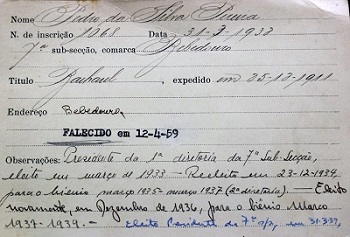 Nome Pedro da Silva
N. de inscrição 1068 Data 31-3-1933
7ª sub-secção, comarca Bebedouro
Título Bacharel, expedido em 25-12-1911
Endereço Bebedouro
FALECIDO em 12-4-59
Observações: Presidente da 1ª diretoria da 7ª Sub-Secção,
eleito em março de 1933 - Reeleito em 23-12-1934
para o biênio março 1935-março 1937 (2ª diretoria). - Eleito
novamente, em Dezembro de 1936, para o biênio Março
1937-1939. - Eleito Presidente da 7ª em 31-3-39,